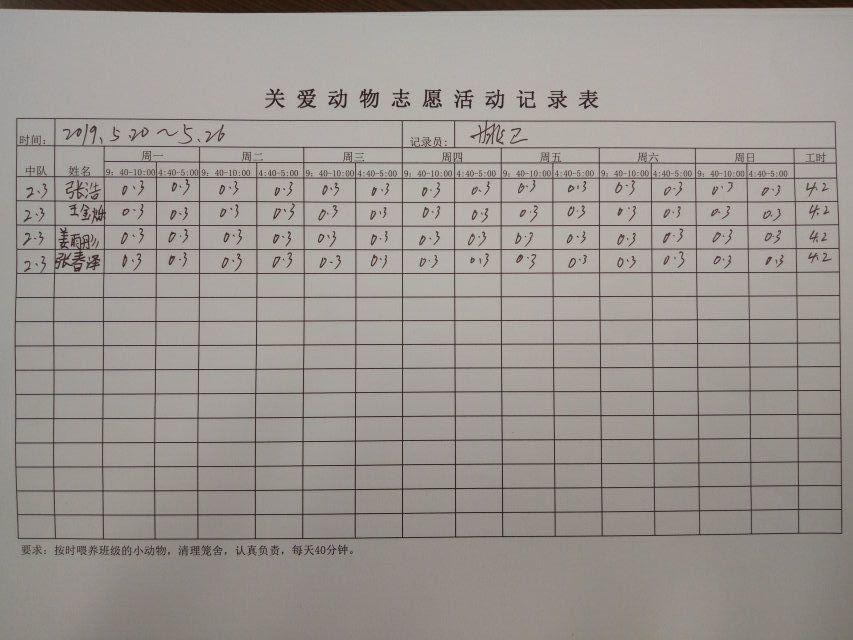 关爱动物志愿活动记录表
时间： 2019.5.20～5.26 记录员：
周一 周二 周三 周四 周五 周六 周日 工时
中队 姓名 9：40-10:00 4:40-5:00 9：40-10:00 4:40-5:00 9：40-10:00 4:40-5:00 9：40-10:00 4:40-5:00 9：40-10:00 4:40-5:00 9：40-10:00 4:40-5:00 9：40-10:00 4:40-5:00
2.3 张浩 0.3 0.3 0.3 0.3 0.3 0.3 0.3 0.3 0.3 0.3 0.3 0.3 0.3 0.3 4.2
2.3 王金烁 0.3 0.3 0.3 0.3 0.3 0.3 0.3 0.3 0.3 0.3 0.3 0.3 0.3 0.3 4.2
2.3 姜雨彤 0.3 0.3 0.3 0.3 0.3 0.3 0.3 0.3 0.3 0.3 0.3 0.3 0.3 0.3 4.2
2.3 张春泽 0.3 0.3 0.3 0.3 0.3 0.3 0.3 0.3 0.3 0.3 0.3 0.3 0.3 0.3 4.2
要求：按时喂养班级的小动物，清理笼舍，认真负责，每天40分钟。